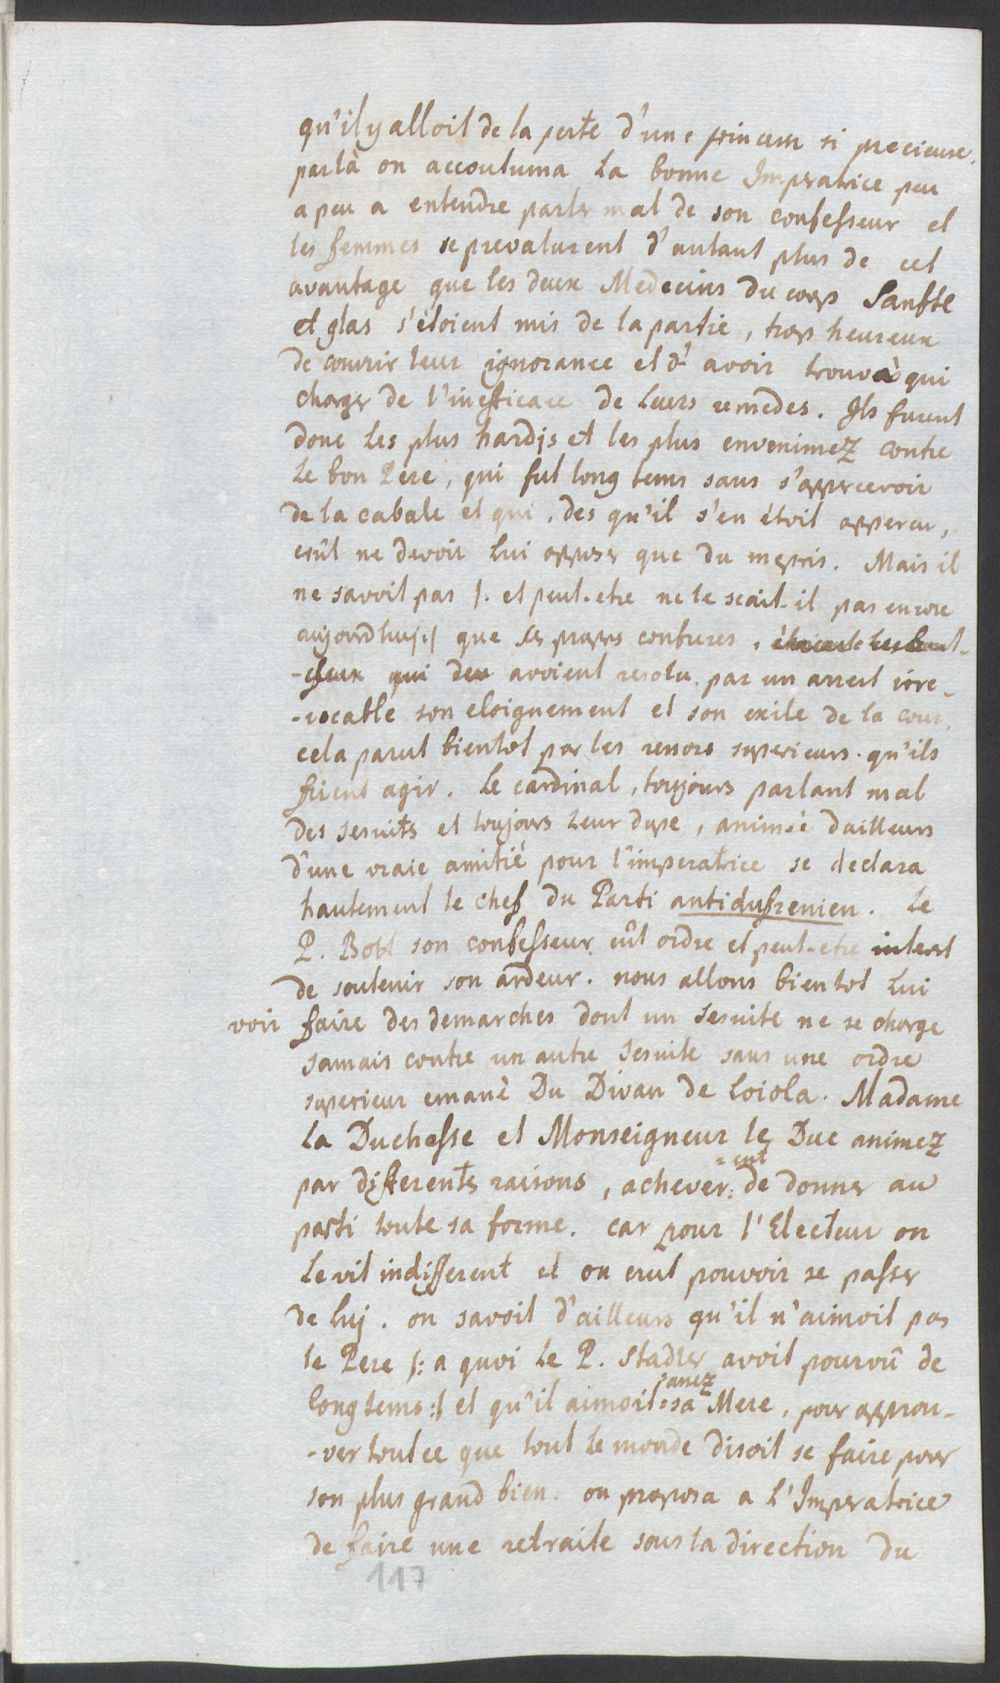 qu'il y alloit de la perte d'une princesse si precieuse.
par là on accoutuma la bonne Imperatrice peu
a peu a entendre parler mal de son confesseur et
les femmes se prevalurent d'autant plus de cet
avantage que les deux Medecins du corps Sanfte
et glas s'étoient mis de la partie, trop heureux
de couvrir leur ignorance et d'avoir trouvé à qui
charger de l'inefficace de leurs remedes. Ils furent
donc les plus hardis et les plus envenimez contre
le bon Pere, qui fut long tems sans s'appercevoir
de la cabale et qui, des qu'il s'en étoit apperçu,
crût ne devoir lui opposer que du mepris. Mais il
ne savoit pas /. et peut-etre ne le scait-il pas encore
aujourdhuj./ que ses propres confreres,
qui avoient resolu par un arrest irre-
-vocable son eloignement et son exile de la cour.
cela parut bientot par les renors superieurs qu'ils
firent agir. Le cardinal, toujours parlant mal
des Jesuits et toujours leur dupe, animé dailleurs
d'une vraie amitié pour l'imperatrice se declara
hautement le chef du Parti antidufrenien. Le
P. Bobl son confesseur eût ordre et peut-etre interet
de soutenir son ardeur. nous allons bientot lui
voir faire des demarches dont un Jesuite ne se charge
Jamais contre un autre Jesuite sans une ordre
superieur emané Du Divan de Loiola. Madame
La Duchesse et Monseigneur le Duc animez
par differents raisons, achever=
=ent
de donner au
parti toute sa forme. car pour l'Electeur on
le vit indifferent et on crut pouvoir se passer
de luj. on savoit d'ailleurs qu'il n'aimoit pas
le Pere /: a quoi le P. Stadler avoit pourvû de
longtems :/ et qu'il aimoit
assez
sa Mere, pour approu-
-ver tout ce que tout le monde disoit se faire pour
son plus grand bien. on proposa a L'Imperatrice
de faire une retraite sous la direction du
117